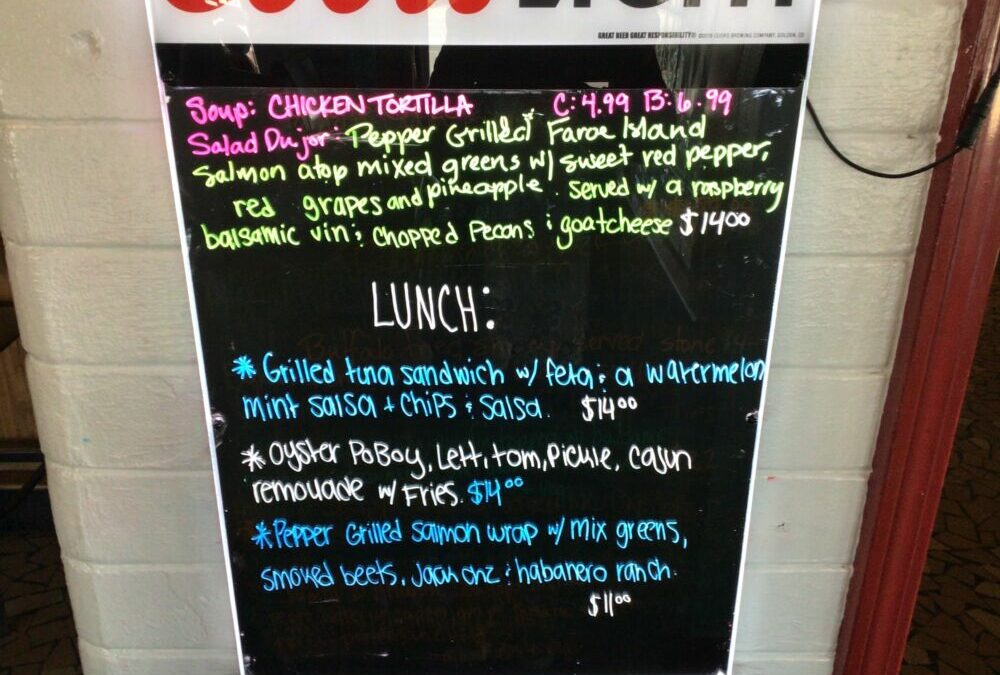 Coors LIGHT
GREAT BEER GREAT RESPONSIBILITY®
Soup: CHICKEN TORTILLA C: 4.99 B: 6.99
Salad Dujor: Pepper Grilled Faroe Island
Salmon atop mixed greens w/ sweet red pepper,
red grapes and pineapple. Served w/ a raspberry
balsamic vin & chopped Pecans & goatcheese $14.00
LUNCH:
* Grilled tuna sandwich w/ feta & a watermelon
mint salsa + chips & salsa. $14.00
* Oyster PoBoy, Lett, tom, Pickle, cajun
remoulade w/ Fries. $14.00
* Pepper Grilled salmon wrap w/ mix greens,
smoked beets, Jack onz & habanero ranch.
$11.00